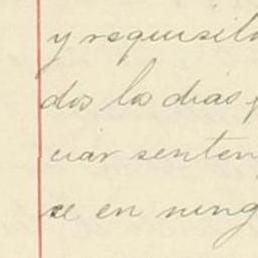 y requisito
dos los dias
ciar senten
se en ning